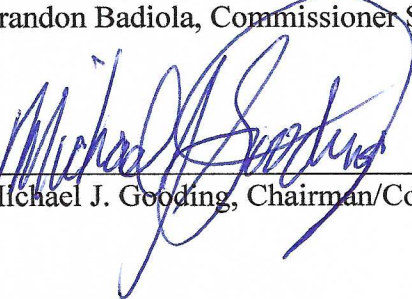 randon Badiola, Commissioner S
Michael J Gooding
Michael J. Gooding, Chairman/Co